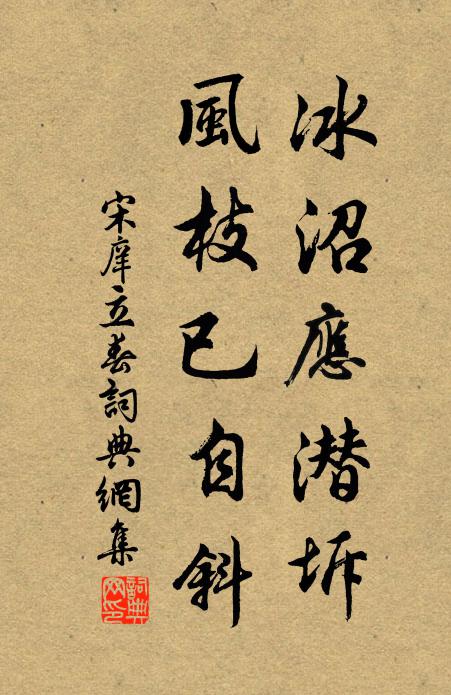 冰沼應潜坼
風枝已自斜
宋庠立春詞典網集
詞典网印